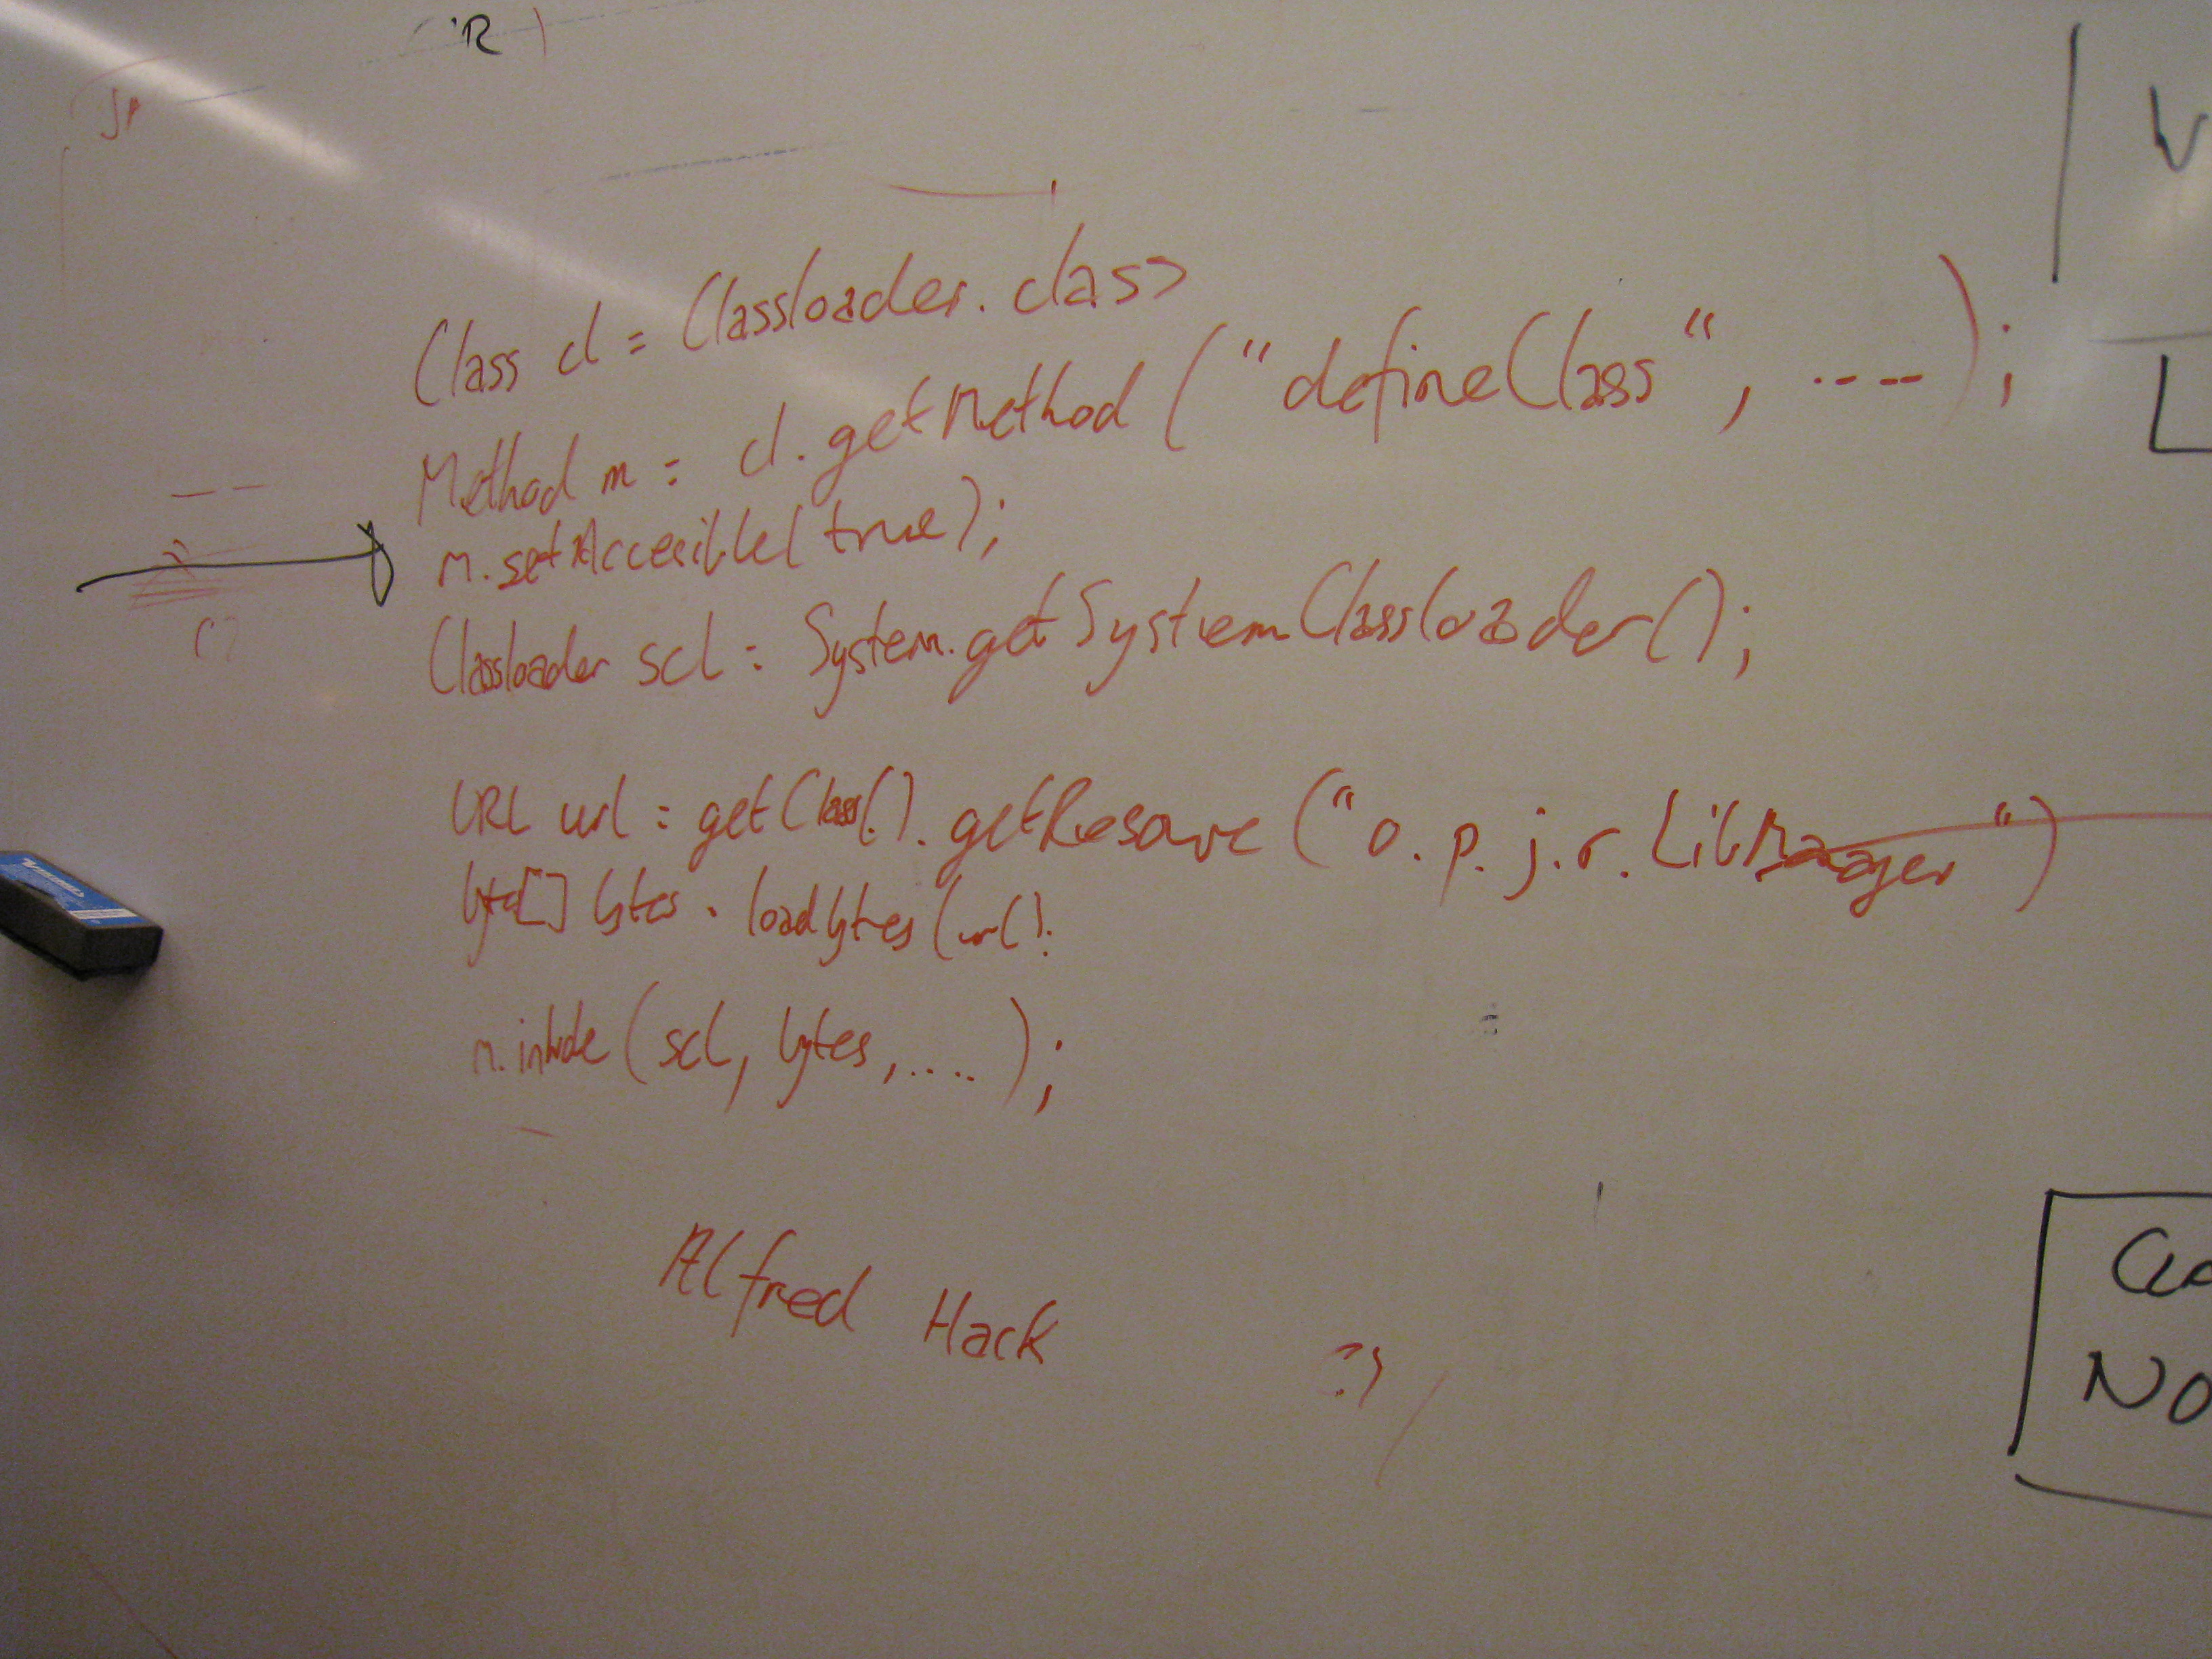 R
Class cl = Classloader.class
Method m = cl.getMethod ("defineClass", ----);
m.setAccesible(true);
Classloader scl = System.getSystemClassloader();
URL url = getClass().getResource ("o.p.j.r.LibManager")
byte[] bytes = loadbytes(url);
m.invoke (scl, bytes, ....);
Alfred Hack
NO